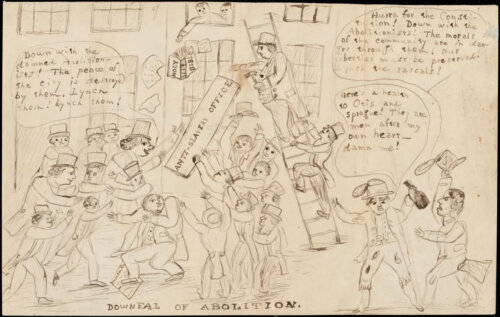 Down with the
damned Abolition-
ists! The peace of
the city is destroye
by them. Lynch
them! Lynch them!
Hurra for the Consti-
tution! Down with the
Abolitionists! The morals
of the community are in dan-
ger through them. Our
liberties must be preserved.
Lynch the rascals!
Here's a health
to Otis and
Sprague! They are
men after my
own heart—
damn me!
HOLY
BIBLE
ANTI-SLAVERY OFFICE
DOWNFAL OF ABOLITION.